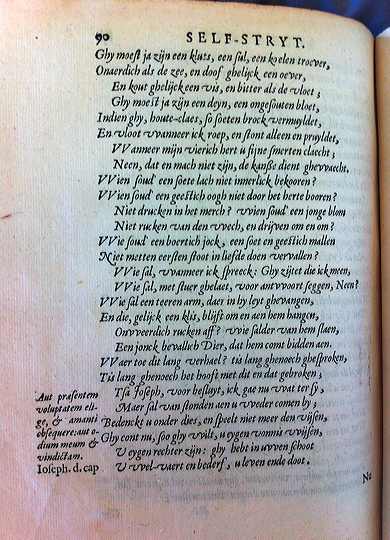 90 SELF-STRYT.
Ghy moest ja zijn een kluts, een sul, een koelen troever,
Onaerdich als de zee, en doof ghelijck een oever,
En kout ghelijck een vis, en bitter als de roet;
Ghy moest ja zijn een deyn, een ongesouten bloet,
Indien ghy, houte-claes, so soeten brock vermuyldet,
En vloot wanneer ick roep, en stont alleen en pruyldet,
VVanneer mijn vierich hert u fijne smerten claecht;
Neen, dat en mach niet zijn, de kanße dient ghewaecht.
VVien soud' een soete lach niet innerlick bekooren?
VVien soud' een geestich oogh niet door het herte booren?
Niet drucken in het merch? wien soud' een jonge blom
Niet rucken van den wech, en drijven om en om?
VVie soud' een boertich jock, een soet en geestich mallen
Niet metten eersten stoot in liefde doen vervallen?
VVie sal, wanneer ick spreeck: Ghy zijtet die ick meen,
VVie sal, met stuer ghelaet, voor antwoort seggen, Neen?
VVie sal een teeren arm, daer in hy leyt ghevangen,
En die, gelijck een klis, blijft om en aen hem hangen,
Onweerdich rucken aff? wie salder van hem slaen,
Een jonck bevallich Dier, dat hem comt bidden aen.
VVaer toe dit lang verhael? tis lang ghenoech ghesproken,
Tis lang ghenoech het hooft met dit en dat gebroken;
Tsa Joseph, voor besluyt, ick gae nu wat ter sy,
Maer sal van stonden aen u weder comen by;
Bedenckt u onder dies, en speelt niet meer den wijsen,
Ghy cont nu, soo ghy wilt, u eygen vonnis wijsen,
U eygen rechter zijn: ghy hebt in uwen schoot
U wel-vaert en bederf, u leven ende doot.
Aut præsentem
voluptatem eli-
ge, & amanti
obsequere: aut o-
dium meum &
vindictam.
Ioseph. d. cap
Na